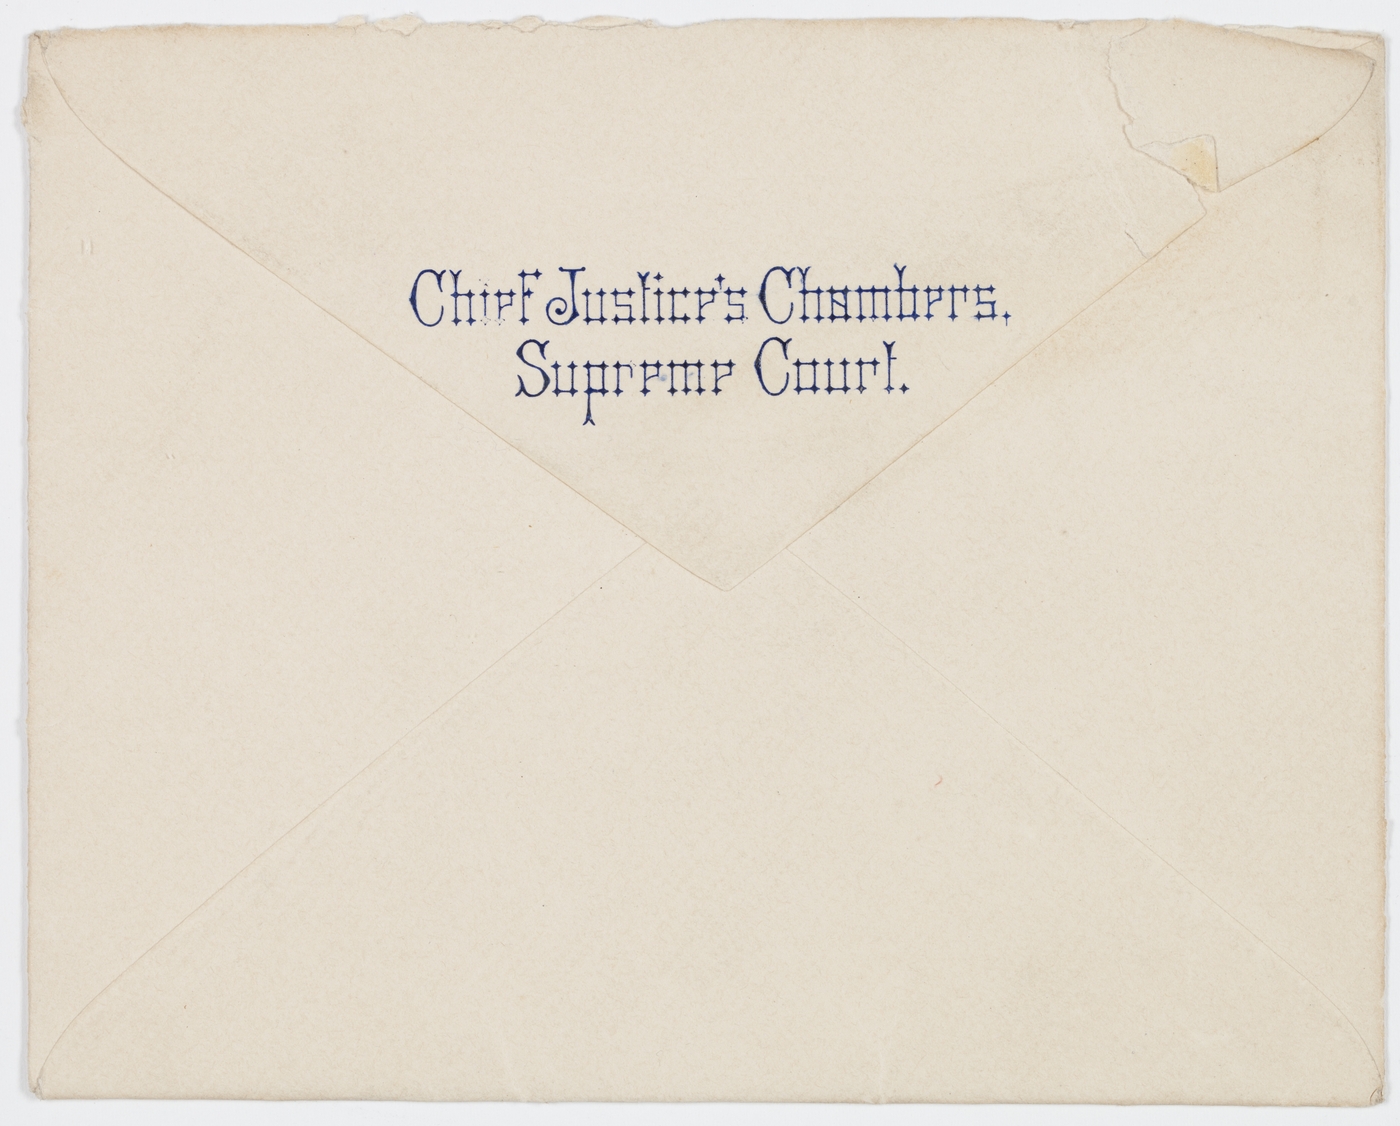 Chief Justice's Chambers,
Supreme Court.